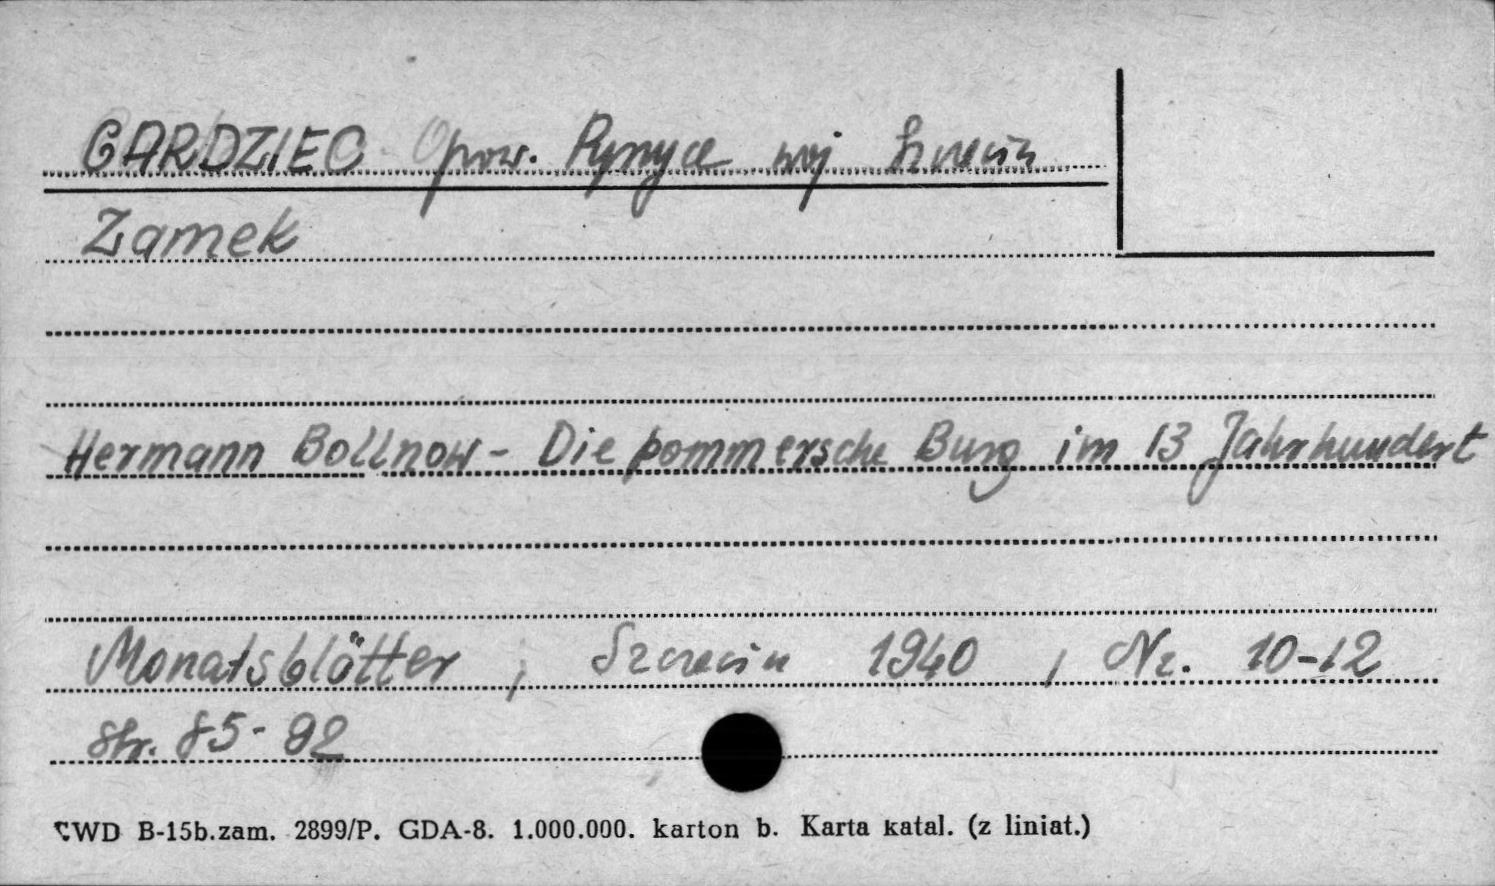 GARDZIEC pow. Pyrzyce woj Szczecin
Zamek
Hermann Bollnow - Die pommersche Burg im 13 Jahrhundert
Monatsblätter , Szczecin 1940 , Nr. 10-12
Str. 85-92
CWD B-15b.zam. 2899/P. GDA-8. 1.000.000. karton b. Karta katal. (z liniat.)